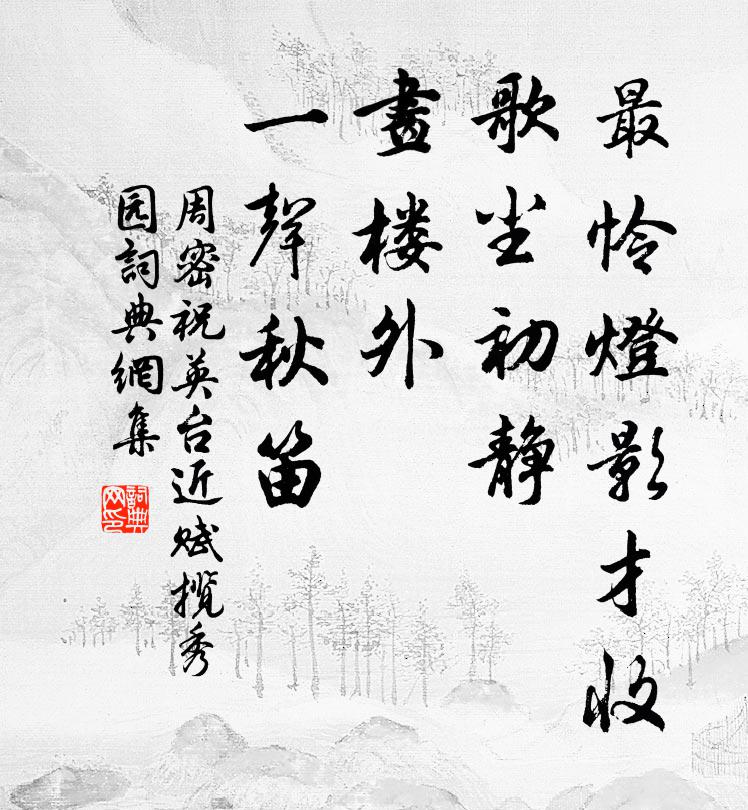 最怜燈影才收
歌尘初静
畫楼外
一聲秋笛
周密祝英台近赋揽秀
园詞典網集
詞典
网印